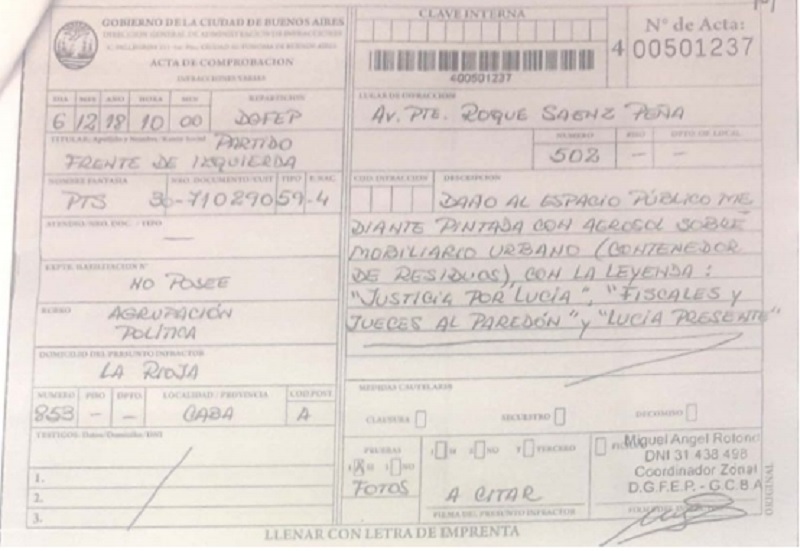 GOBIERNO DE LA CIUDAD DE BUENOS AIRES
DIRECCION GENERAL DE ADMINISTRACION DE INFRACCIONES
ACTA DE COMPROBACION
INFRACCIONES VARIAS
CLAVE INTERNA
400501237
Nº de Acta:
4 00501237
DIA MES AÑO HORA MIN REPARTICION
6 12 18 10 00
TITULAR: Apellido y Nombre / Razón Social PARTIDO
FRENTE DE IZQUIERDA
NOMBRE FANTASIA NRO. DOCUMENTO/CUIT TIPO
PTS 30-71029059-4
EXPTE. HABILITACION Nº
NO POSEE
RUBRO AGRUPACIÓN
POLÍTICA
DOMICILIO DEL PRESUNTO INFRACTOR
LA RIOJA
NUMERO PISO DPTO. LOCALIDAD / PROVINCIA COD.POST
853 - - CABA A
TESTIGOS: Datos/Domicilio/DNI
1.
2.
3.
LUGAR DE INFRACCION
AV. PTE. ROQUE SAENZ PEÑA
NUMERO PISO DPTO. OF. LOCAL
502 - -
COD. INFRACCION DESCRIPCION
DAÑO AL ESPACIO PÚBLICO ME
DIANTE PINTADA CON AEROSOL SOBRE
MOBILIARIO URBANO (CONTENEDOR
DE RESIDUOS), CON LA LEYENDA:
"JUSTICIA POR LUCÍA", "FISCALES Y
JUECES AL PAREDÓN" Y "LUCÍA PRESENTE"
MEDIDAS CAUTELARES
CLAUSURA SECUESTRO DECOMISO
PRUEBAS
SI NO
FOTOS
SI NO TERCERO
A CITAR
FIRMA DEL PRESUNTO INFRACTOR
Miguel Angel Rolon
DNI 31 438 498
Coordinador Zonal
D.G.F.E.P. - G.C.B.A
ORIGINAL
LLENAR CON LETRA DE IMPRENTA